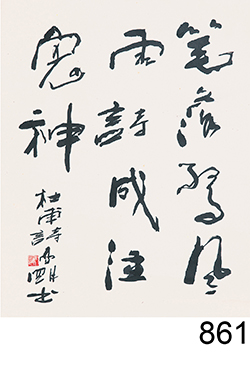 笔落驚風
雨詩成泣
鬼神
杜甫詩
861